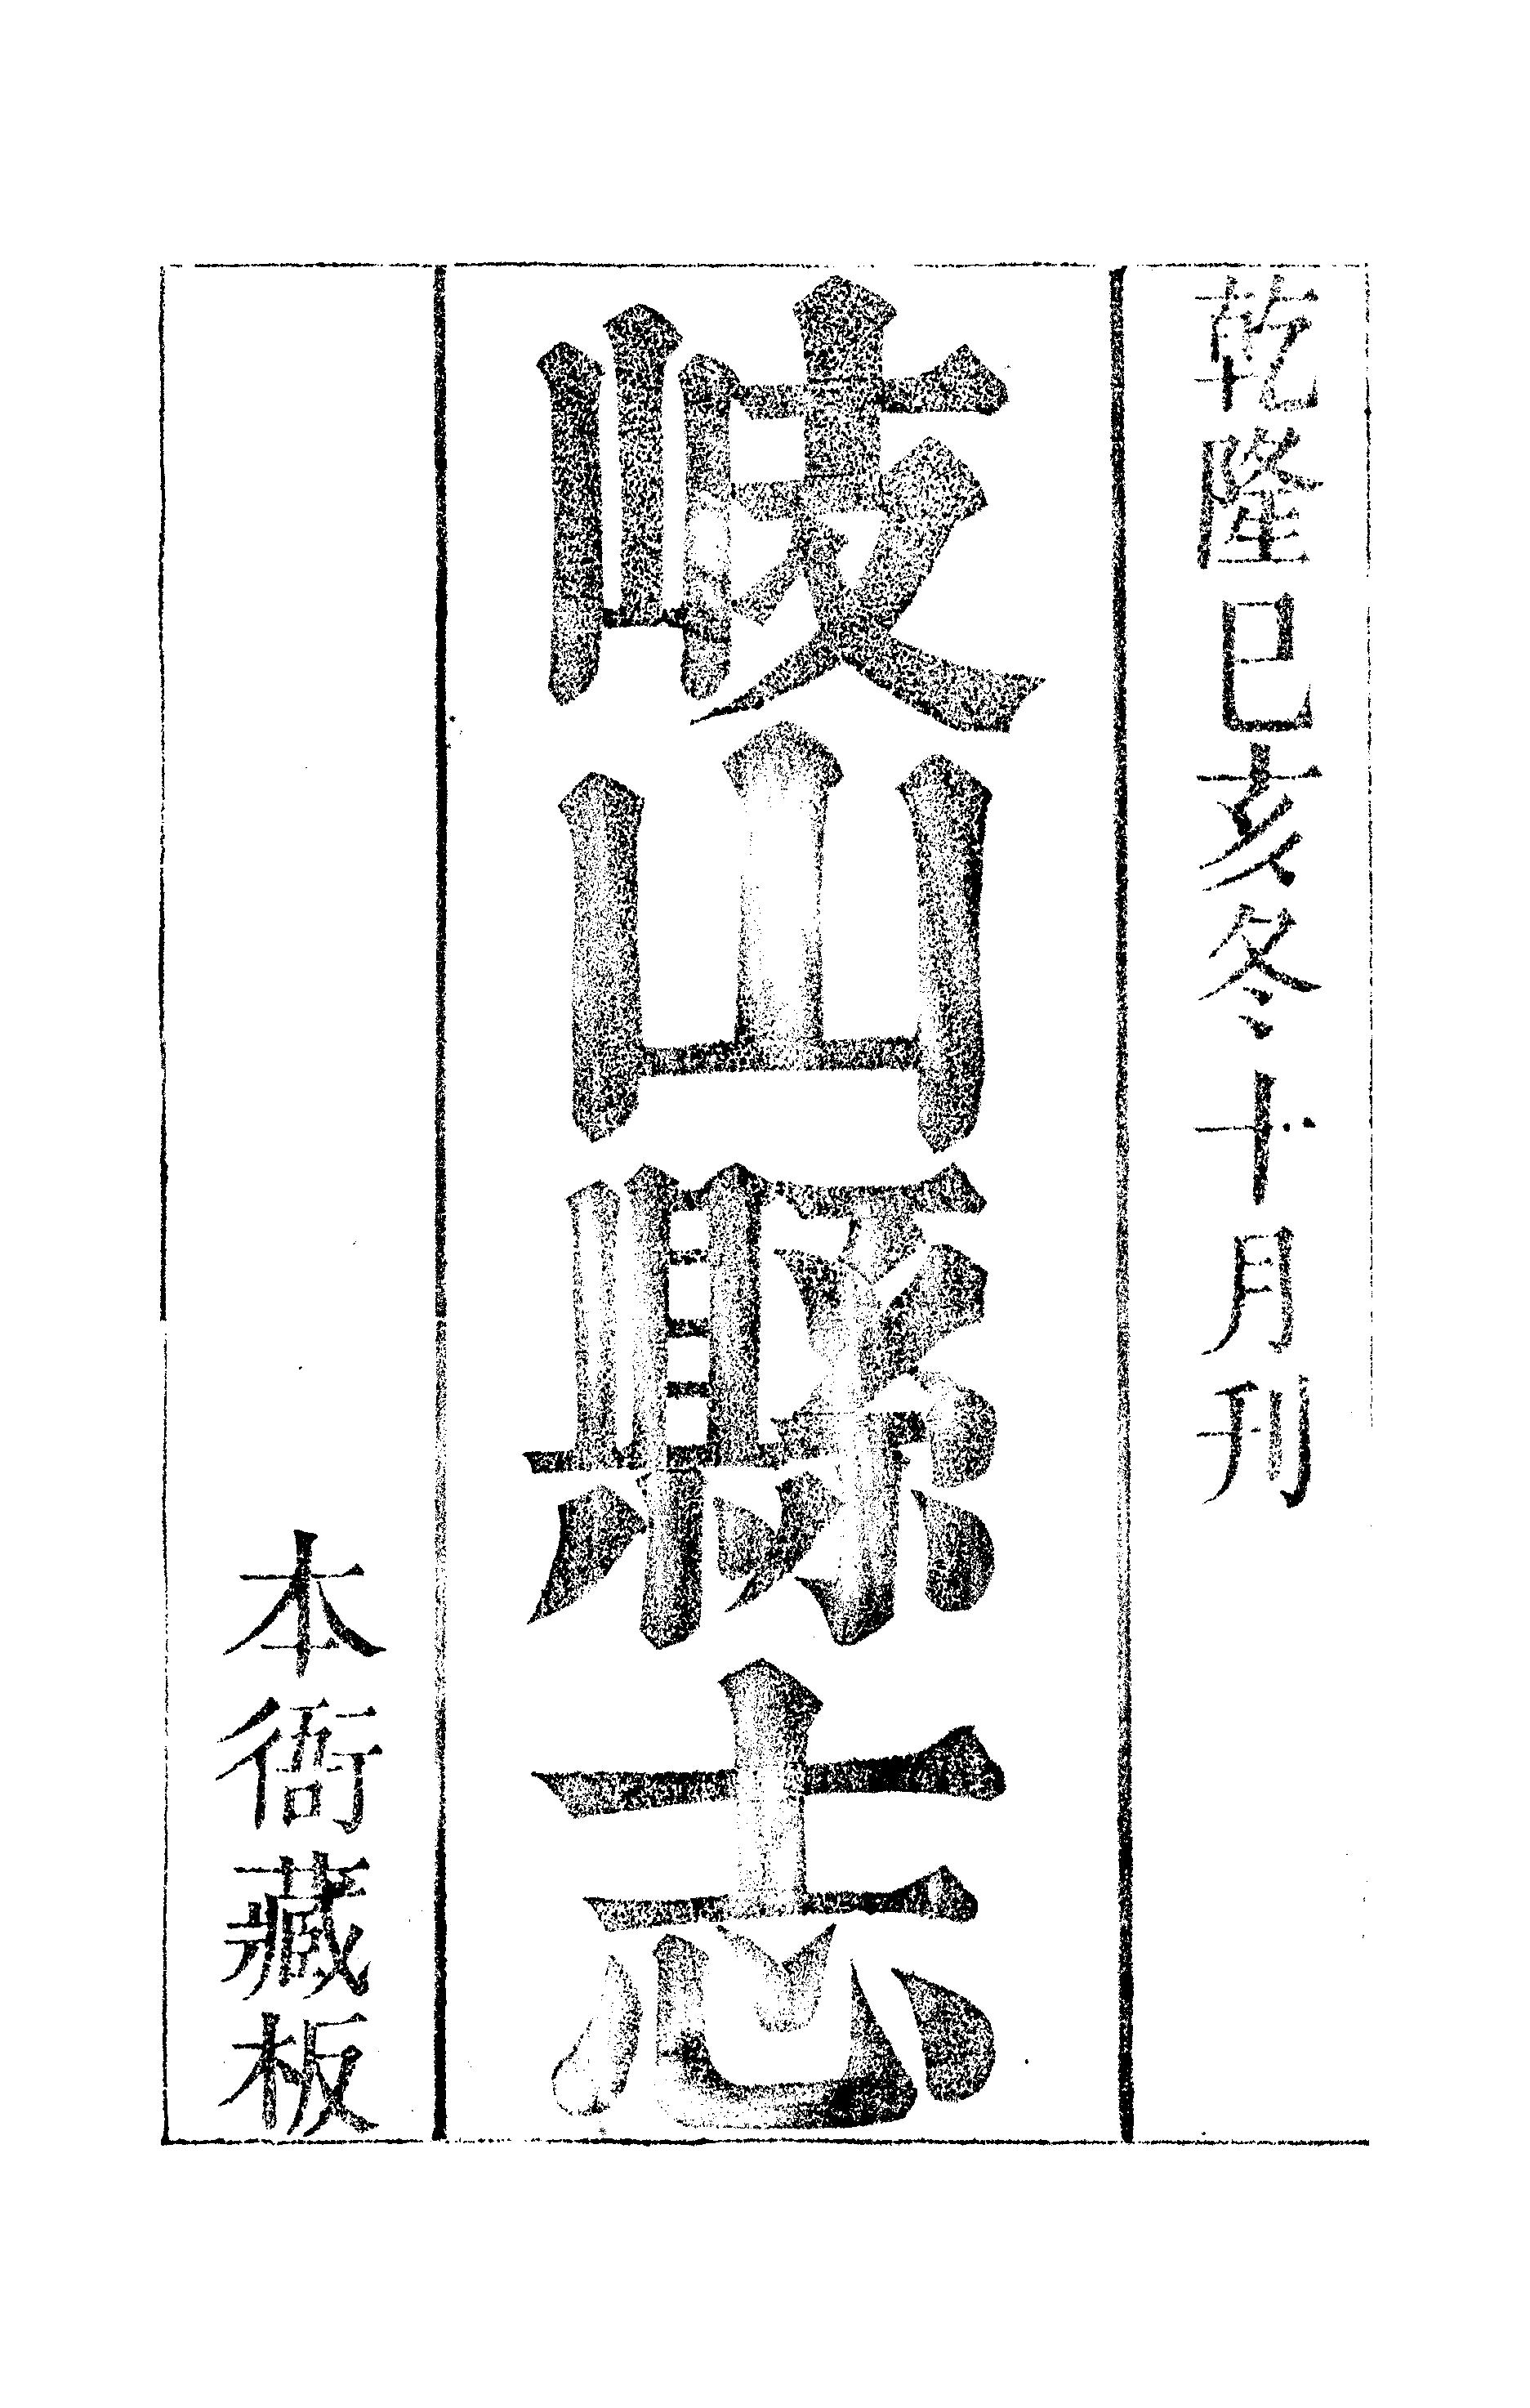 乾隆巳亥冬十月刊
岐山縣志
本衙藏板